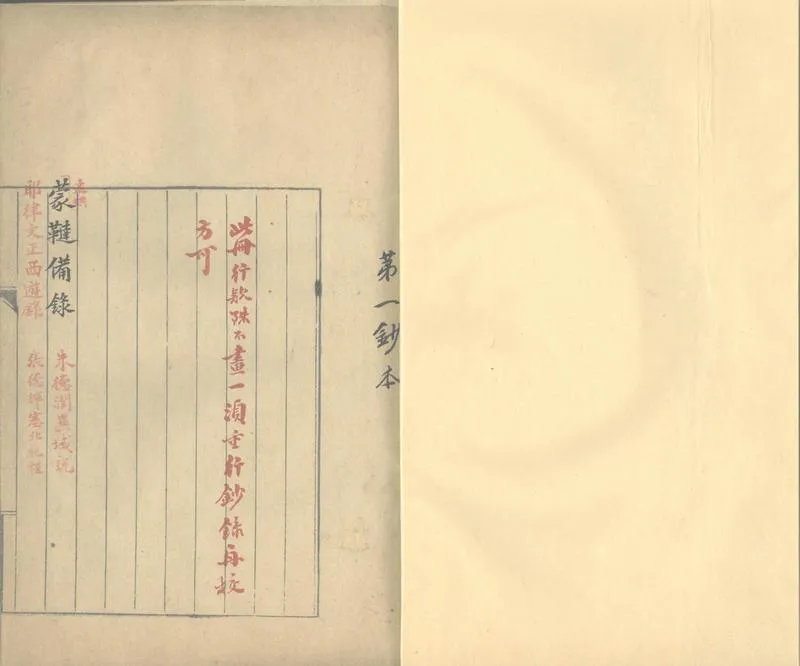 第一鈔本
此冊行款殊不畫一須重行鈔錄再校
方可
蒙韃備錄
朱德潤異域說
耶律文正西遊錄
張德輝塞北紀程